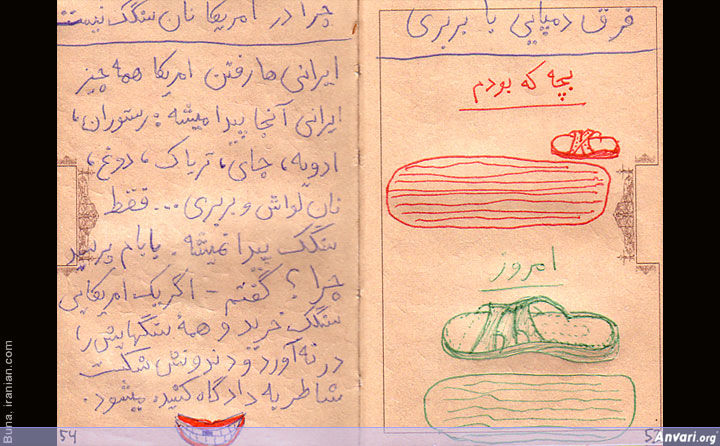 فرق دمپایی با بربری
بچه که بودم
امروز
چرا در امریکا نان سنگک نیست
ایرانی ها رفتن امریکا همه چیز
ایرانی آنجا پیدا میشه : رستوران،
ادویه، چای، تریاک، دوغ،
نان لواش و بربری ... فقط
سنگک پیدا نمیشه. بابام پرسید
چرا؟ گفتم - اگر یک امریکایی
سنگک خرید و همهٔ سنگهایش را
در نه آورد و دندونش شکست
شاطر به دادگاه کشیده میشود.
54
Buna, iranian.com
Anvari.org